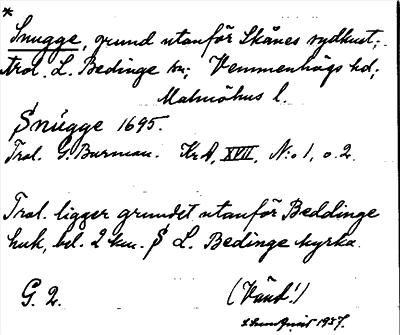 *
Snugge, grund utanför Skånes sydkust,
trol. L. Bedinge sn; Vemmenhögs hd;
Malmöhus l.
Snugge 1695.
Trol. G. Burman. Kr A, XVII, N:o 1, o. 2.
Trol. ligger grundet utanför Beddinge
huk, bel. 2 km. S L. Bedinge kyrka.
G. 2.
(Vänd!)
1937.